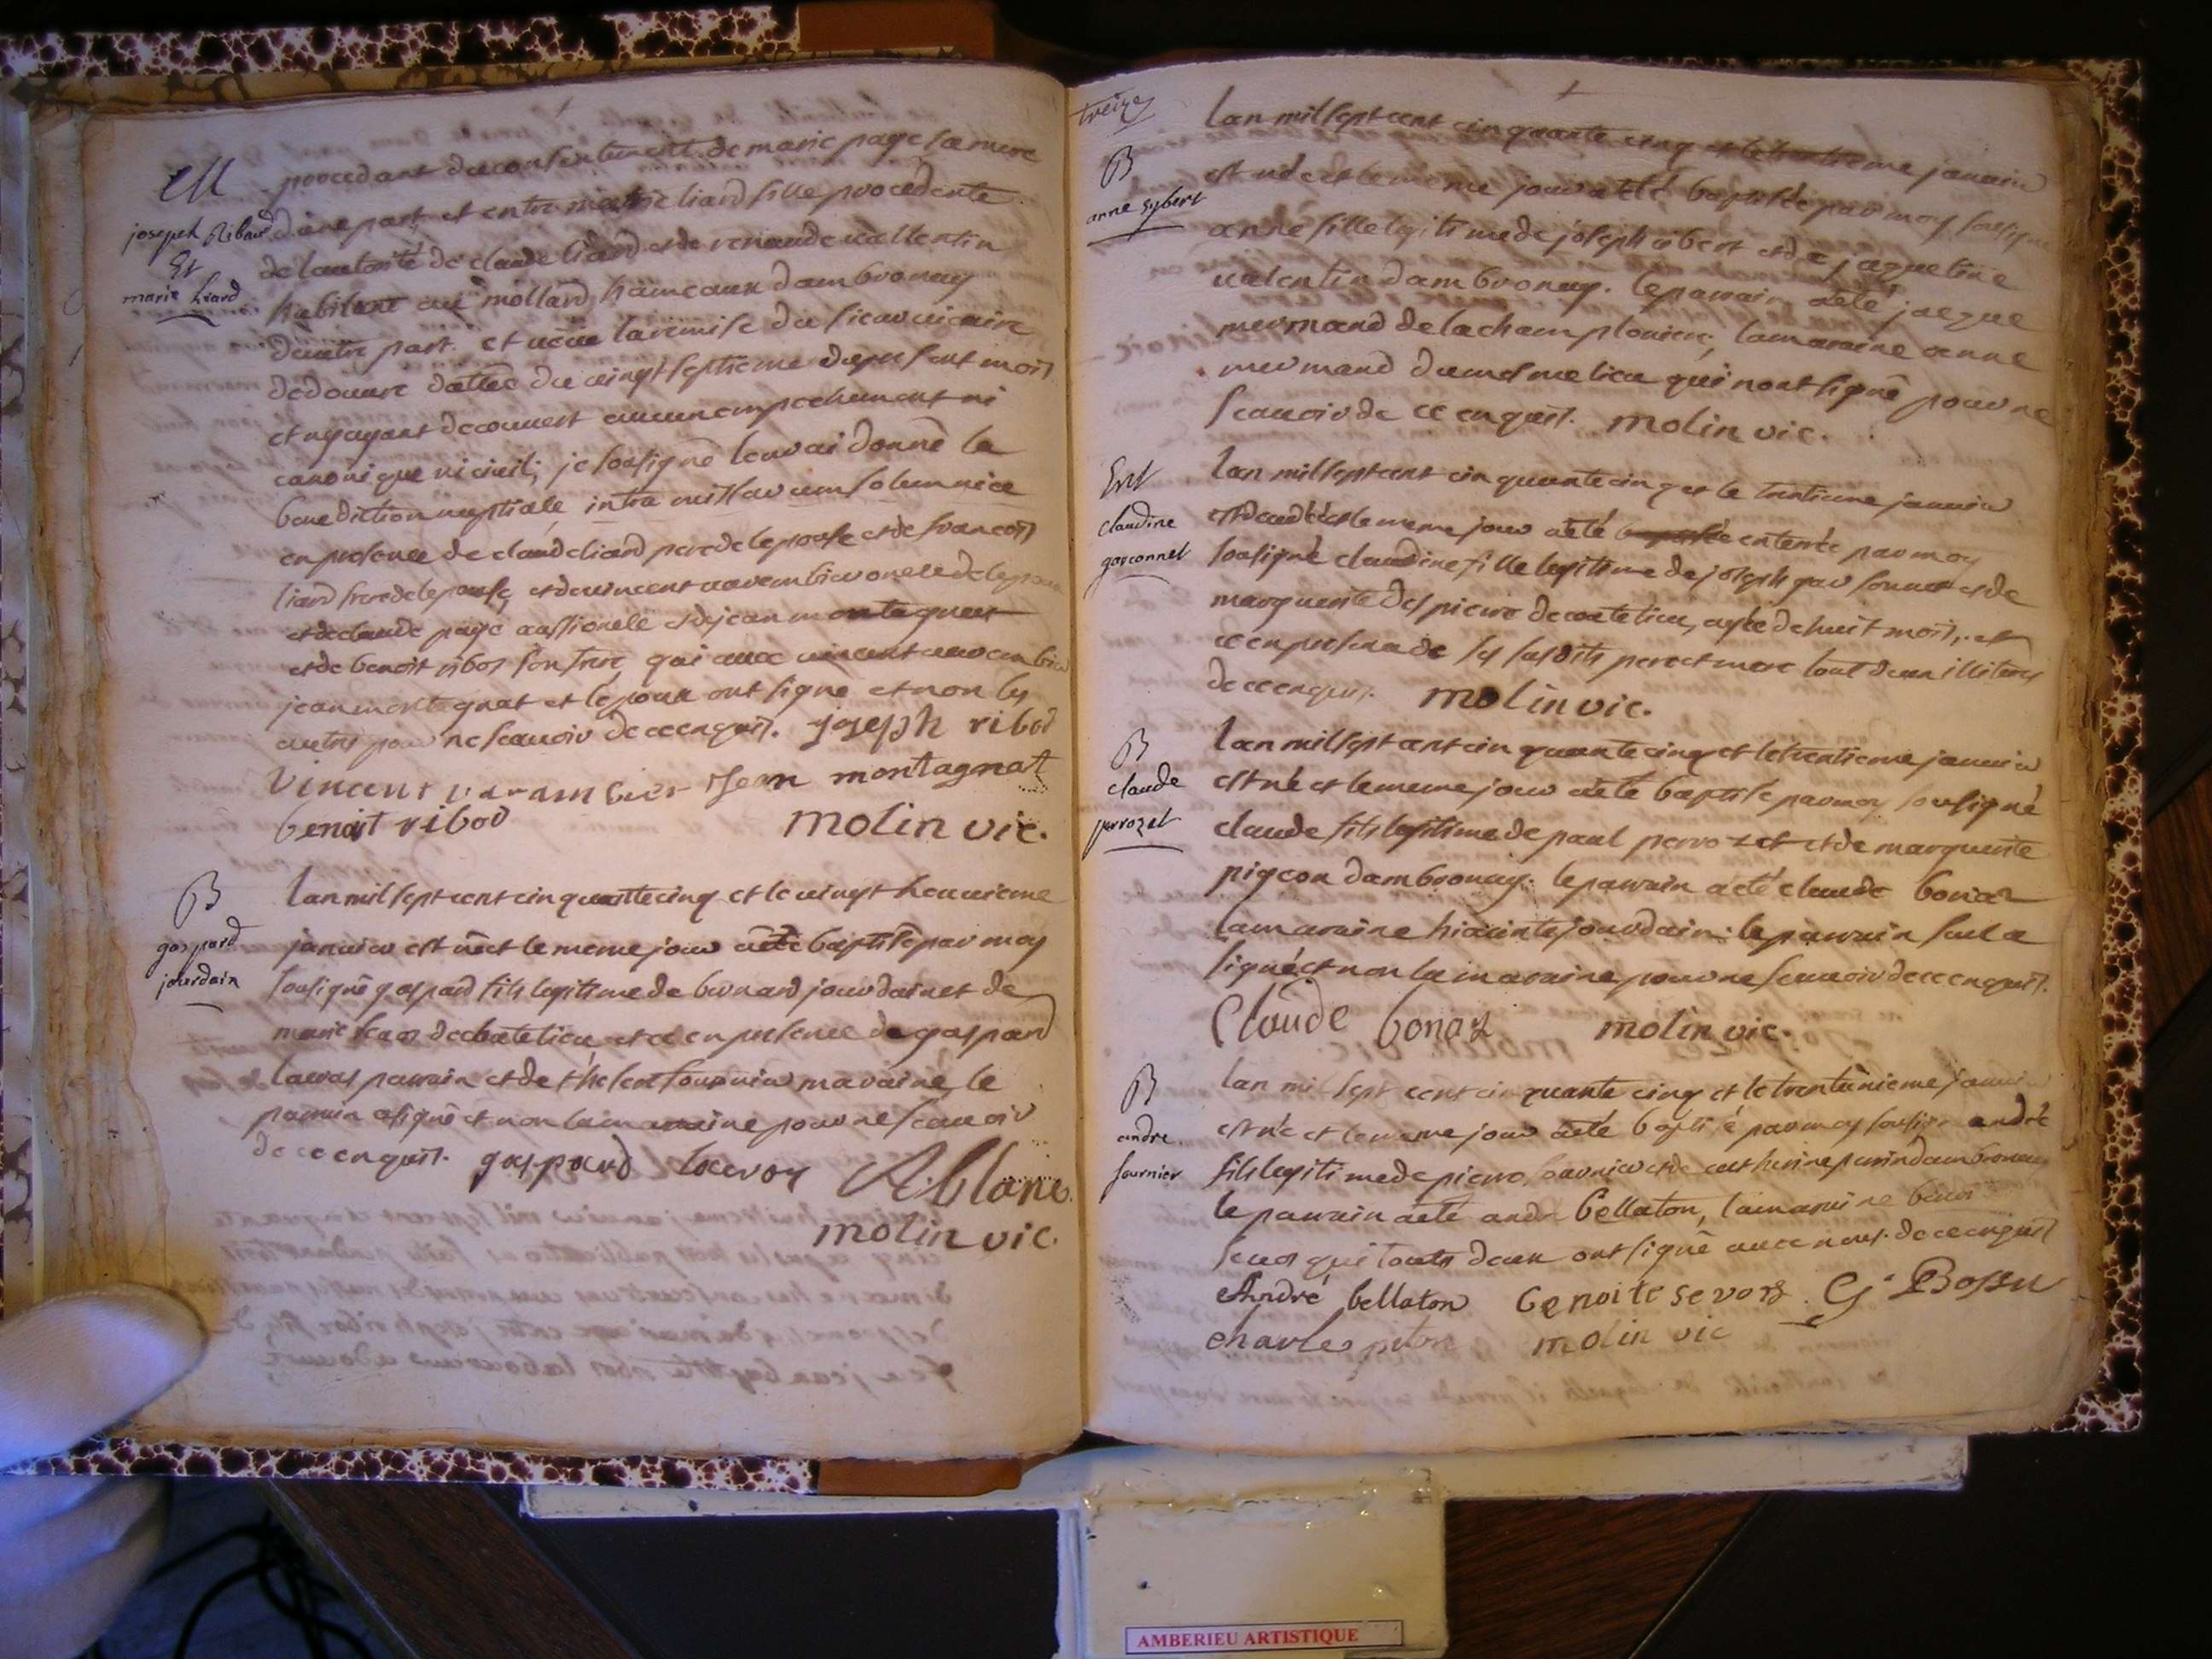 M
joseph Ribaud
Et
marie liard
procedant du consentement de marie paye sa mere
d'une part, et entre marie liard fille procedente
de lautorité de claude liard et de renaude vallentin
habitant au mollard hameaux dambronay
dautre part. et veüe la remise du sieur vicaire
dedouvre dattée du vingt septieme du present mois
et nyayant decouvert aucun empechement ni
canonique ni civil; je sousigné leur ai donné la
benediction nuptiale intra missarum solemnia
en presence de claude liard pere de lepouse et de francois
liard frere de lepouse, et de vincent varambier oncle
et de claude paye aussi oncle et de jean montagnat
et de benoit ribod son frere, qui avec vincent varambier
jean montagnat et lepoux ont signé et non les
autres pour ne scavoir de ce enquis. joseph ribod
Vincent varambier Jean montagnat
benoit ribod molin vic.
B
gaspard
jourdain
lan mil sept cent cinquante cinq et le vingt neuvieme
janvier est né et le meme jour a été baptisé par moy
sousigné gaspard fils legitime de bernard jourdain et de
marie de cate lieu et ce en presence de gaspard
parrain et de maraine, le
parrain a signé et non la maraine pour ne scavoir
de ce enquis. gaspard A. blanc
molin vic.
treize
B
anne sybert
lan mil sept cent cinquante cinq et le janvier
est née et le meme jour a été baptisée par moy sousigné
anne fille legitime de joseph et de jaqueline
valentin dambronay. le parrain a été jacque
mermand de la champloniere, la maraine anne
mermand du mesme lieu qui n'ont signé pour ne
scavoir de ce enquis. molin vic.
Ent
claudine
garconnet
lan mil sept cent cinquante cinq et le trentieme janvier
est decedée et le meme jour a été baptisée enterrée par moy
sousigné claudine fille legitime de joseph garsonnet et de
marguerite despierre de cate lieu, agée de huit mois, et
ce en presence de ses susdits pere et mere tout deux illiteres
de ce enquis. molin vic.
B
claude
perrozet
lan mil sept cent cinquante cinq et le trentieme janvier
est né et le meme jour a été baptisé par moy sousigné
claude fils legitime de paul perrozet et de marguerite
pigeon dambronay. le parrain a été claude bonaz
la maraine hiacinte jourdain. le parrain seul a
signé et non la maraine pour ne scavoir de ce enquis.
Claude bonaz molin vic.
B
andre
fournier
lan mil sept cent cinquante cinq et le trentunieme janvier
est né et le meme jour a été baptisé par moy sousigné andré
fils legitime de pierre fournier et de catherine perrin dambronay
le parrain a été andré bellaton, la maraine
qui touts deux ont signé avec nous. de ce enquis
André bellaton Benoite sevoz G. Bossu
charles molin vic
AMBERIEU ARTISTIQUE